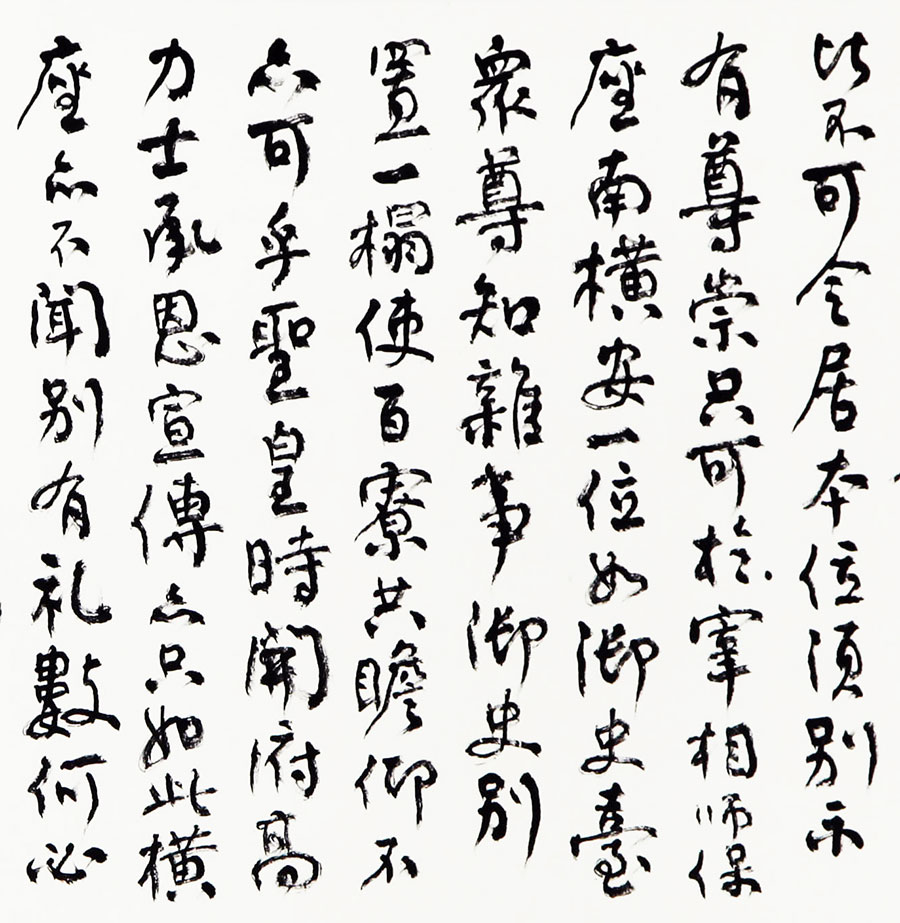 比不可令居本位須別示
有尊崇只可於宰相師保
座南橫安一位如御史臺
衆尊知雜事御史別
置一榻使百寮共瞻仰不
亦可乎聖皇時開府高
力士承恩宣傳亦只如此橫
座亦不聞別有礼數何必